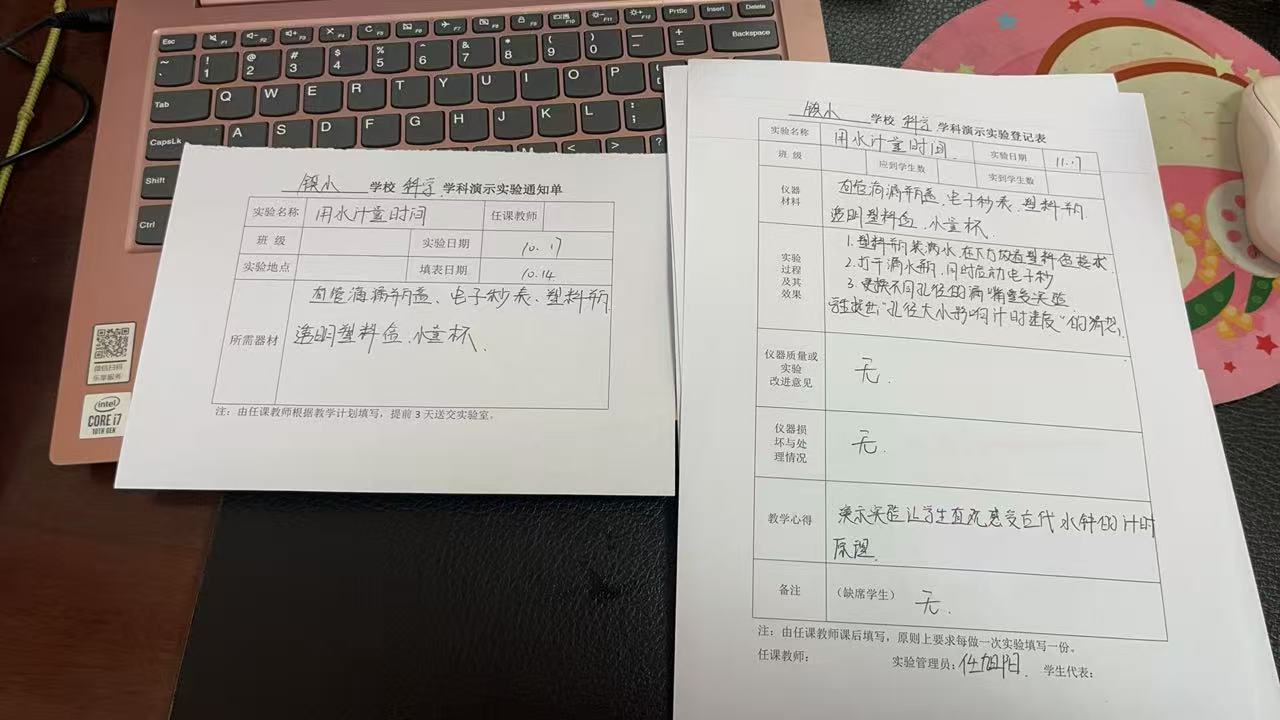 Esc F1 F2 F3 F4 F5 F6 F7 F8 F9 F10 F11 F12 PrtSc Insert Delete
~ ! 1 @ 2 # 3 $ 4 % 5 ^ 6 & 7 * 8 ( 9 ) 0 — - + = Backspace
Tab Q W E R T Y U I O P
CapsLk A S D F G H J K L : ;
Shift < >
Ctrl
微信扫码
乐享服务
intel
CORE i7
10TH GEN
镇小 学校 科学 学科演示实验通知单
实验名称 用水计量时间 任课教师
班 级 实验日期 10.17
实验地点 填表日期 10.14
所需器材 有管滴漏瓶盖、电子秒表、塑料瓶、
透明塑料盒、小量杯、
注：由任课教师根据教学计划填写，提前 3 天送交实验室。
镇小 学校 科学 学科演示实验登记表
实验名称 用水计量时间 实验日期 11.17
班 级 应到学生数 实到学生数
仪器材料 有管滴漏瓶盖、电子秒表、塑料瓶、
透明塑料盒、小量杯、
实验过程及其效果 1.塑料瓶装满水,在下方放着塑料盒接水
2.打开滴水瓶,同时启动电子秒
3.更换不同孔径的滴嘴重复实验
学生提出"孔径大小影响计时速度"的猜想,
仪器质量或实验改进意见 无.
仪器损坏与处理情况 无.
教学心得 演示实验让学生直观感受古代水钟的计时
原理.
备注 （缺席学生） 无.
注：由任课教师课后填写，原则上要求每做一次实验填写一份。
任课教师： 实验管理员：任旭阳. 学生代表：